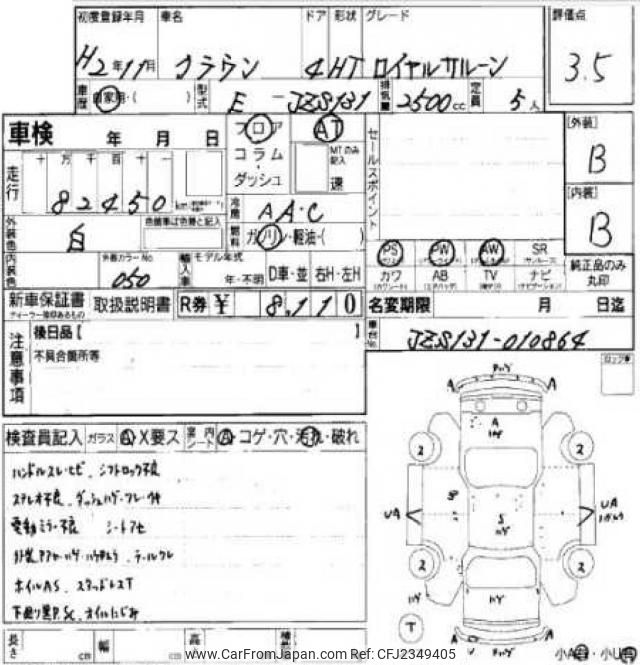 初度登録年月 車名 ドア 形状 グレード 評価点
H2年11月 クラウン 4HT ロイヤルサルーン 3.5
車歴 自家用・( ) 型式 E-JZS131 排気量 2500cc 定員 5人
車検 年 月 日 フロア AT セールスポイント [外装]
コラム・ MTのみ記入 B
走行 十万千百十一 ダッシュ 速
82450km 冷房 AAC [内装]
外装色 白 色替車は色替と記入 燃料 ガソリン・軽油・( ) B
PS PW AW SR
内装色 外装カラーNo. 050 輸入車 モデル年式 年・不明 D車・並 右H・左H カワ AB TV ナビ 純正品のみ丸印
新車保証書 取扱説明書 R券 ¥ 8,110 名変期限 月 日迄
ディーラー捺印あるもの
注意事項 後日品[ ] 車台No. JZS131-010864
不具合箇所等
検査員記入 ガラス A X要ス 室内シート A コゲ・穴・汚れ・破れ
ハンドルスレ・ヒビ、シフトロック不良
ステレオ不良、ダッシュ
電動ミラー不良 シート
ホイルAS、スタッドレスT
下廻り黒P.Sc、オイルにじみ
長さ cm 幅 cm 高
A A
A
2 2
UA S UA
2 2
T
A A
小A含・小U含
www.CarFromJapan.com Ref: CFJ2349405